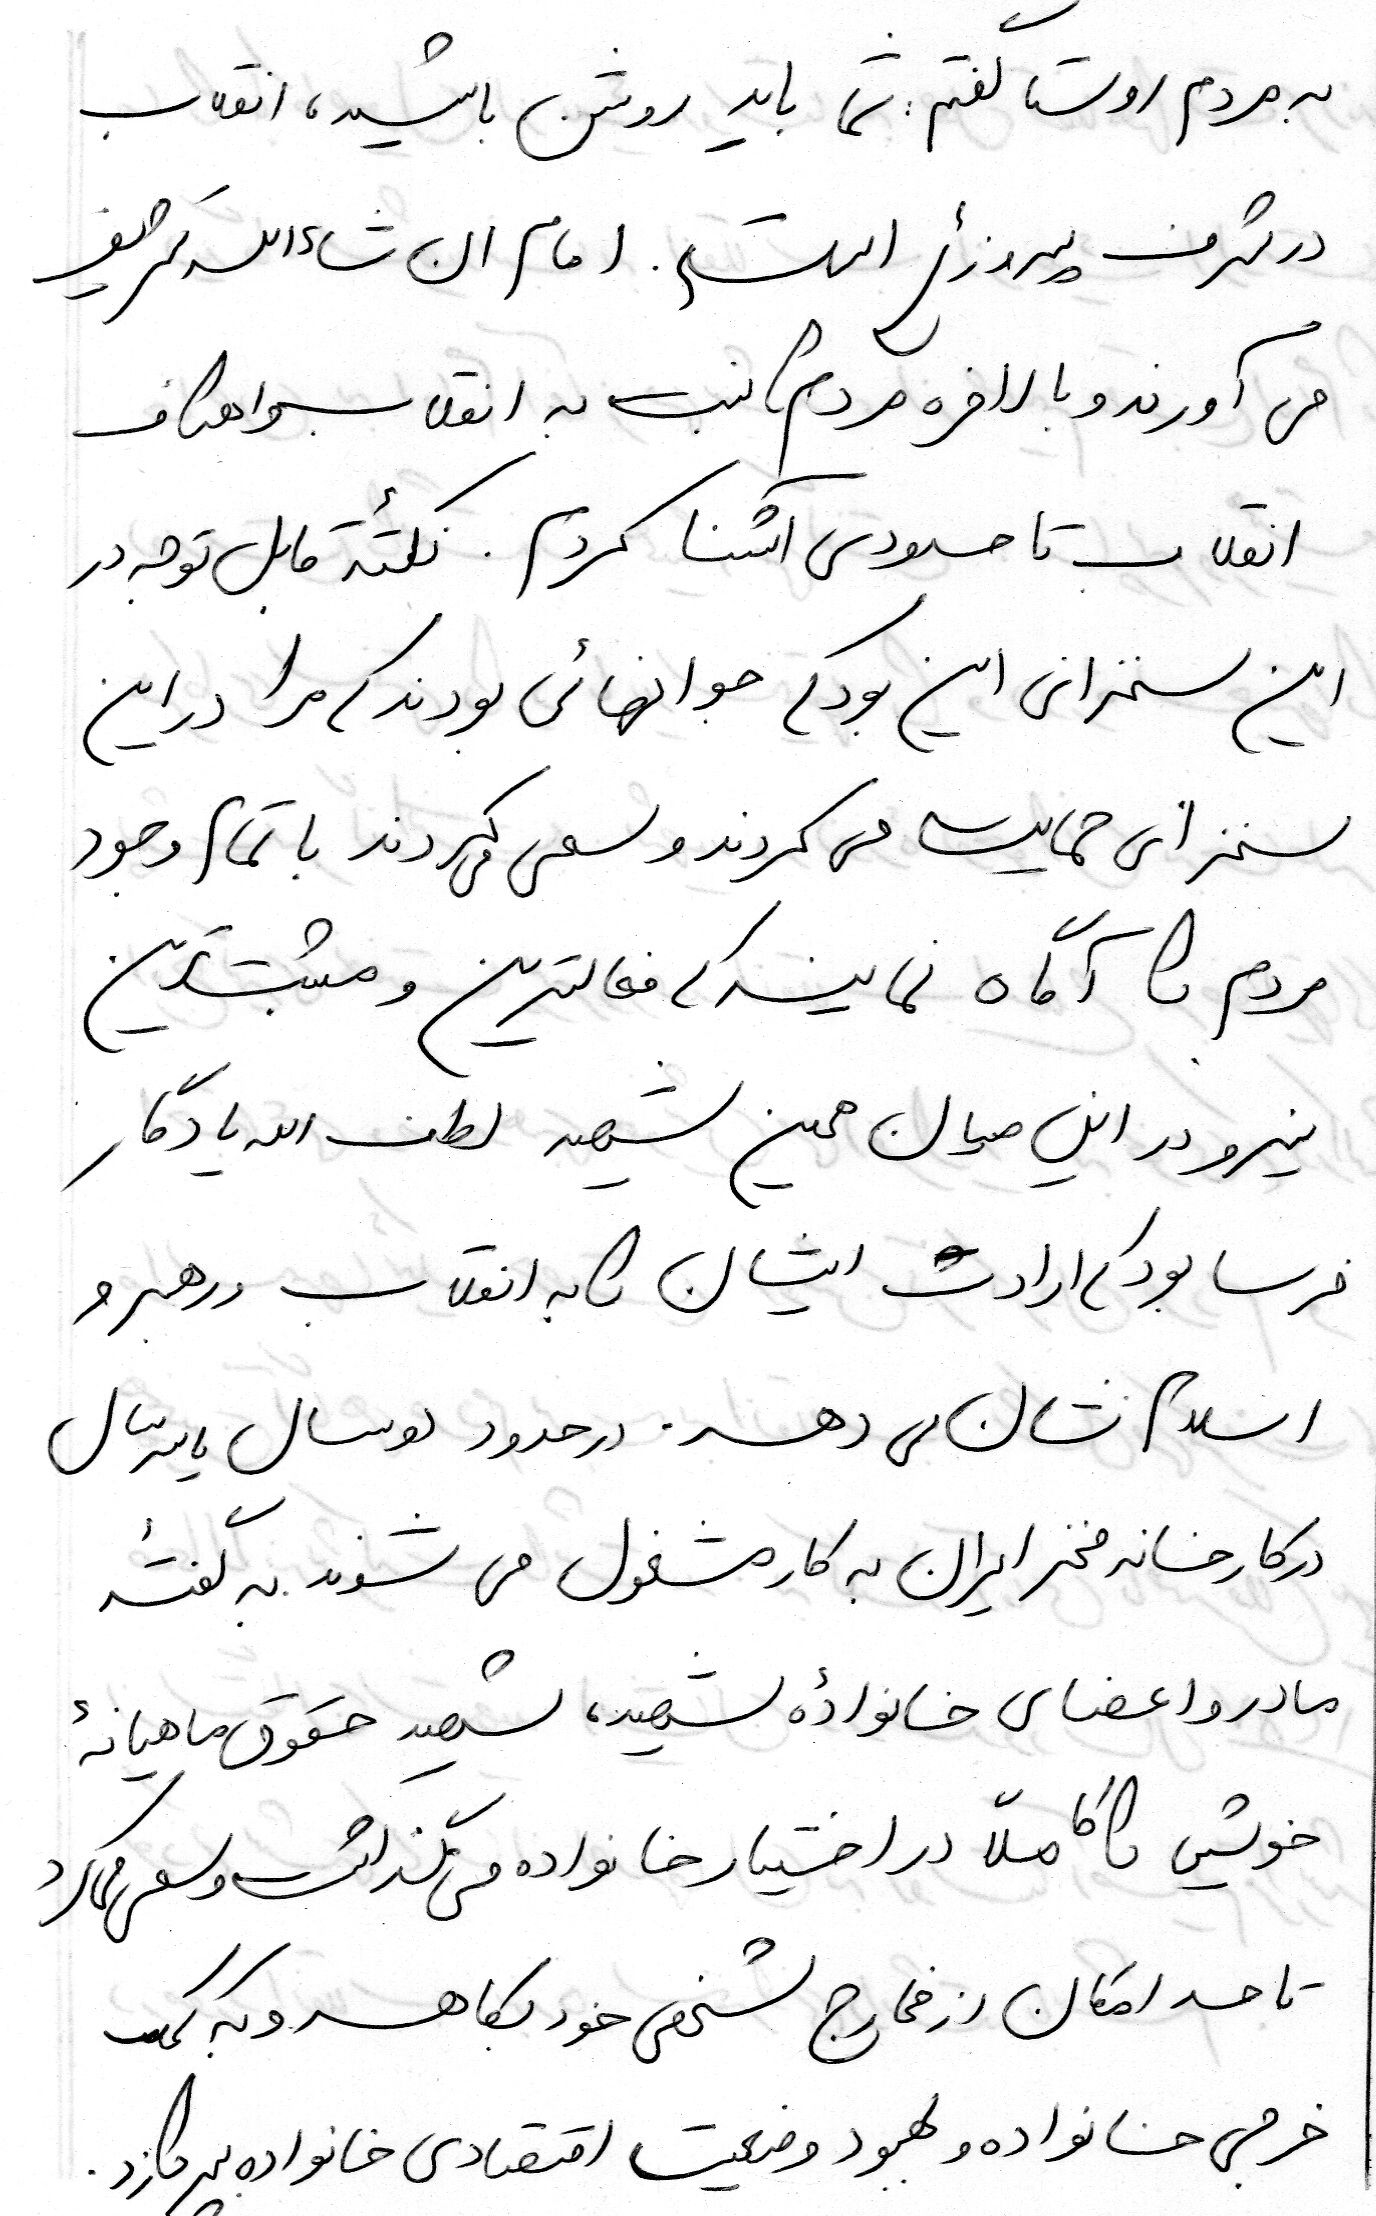 به مردم روستا گفتم: شما باید روشن باشید، انقلاب
در شرف پیروزی است. امام ان شاءالله تشریف
می آورند و بالاخره مردم را نسبت به انقلاب و اهداف
انقلاب تا حدودی آشنا کردم. نکتهٔ قابل توجه در
این سخنرانی این بود که جوانهائی بودند که مرا در این
سخنرانی حمایت می کردند و سعی می کردند با تمام وجود
مردم را آگاه نمایند که فعالترین و مثبت ترین
نیرو در این میان همین شهید لطف الله یادگار
فرسا بود که ارادت ایشان را به انقلاب و رهبر و
اسلام نشان می دهد. در حدود دو سال یا سه سال
در کارخانه فخر ایران به کار مشغول می شوند به گفتهٔ
مادر و اعضای خانوادهٔ شهید، شهید حقوق ماهیانهٔ
خویش را کاملاً در اختیار خانواده می گذاشت و سعی می کرد
تا حد امکان از مخارج شخصی خود بکاهد و به کمک
خرجی خانواده و بهبود وضعیت اقتصادی خانواده بپردازد.